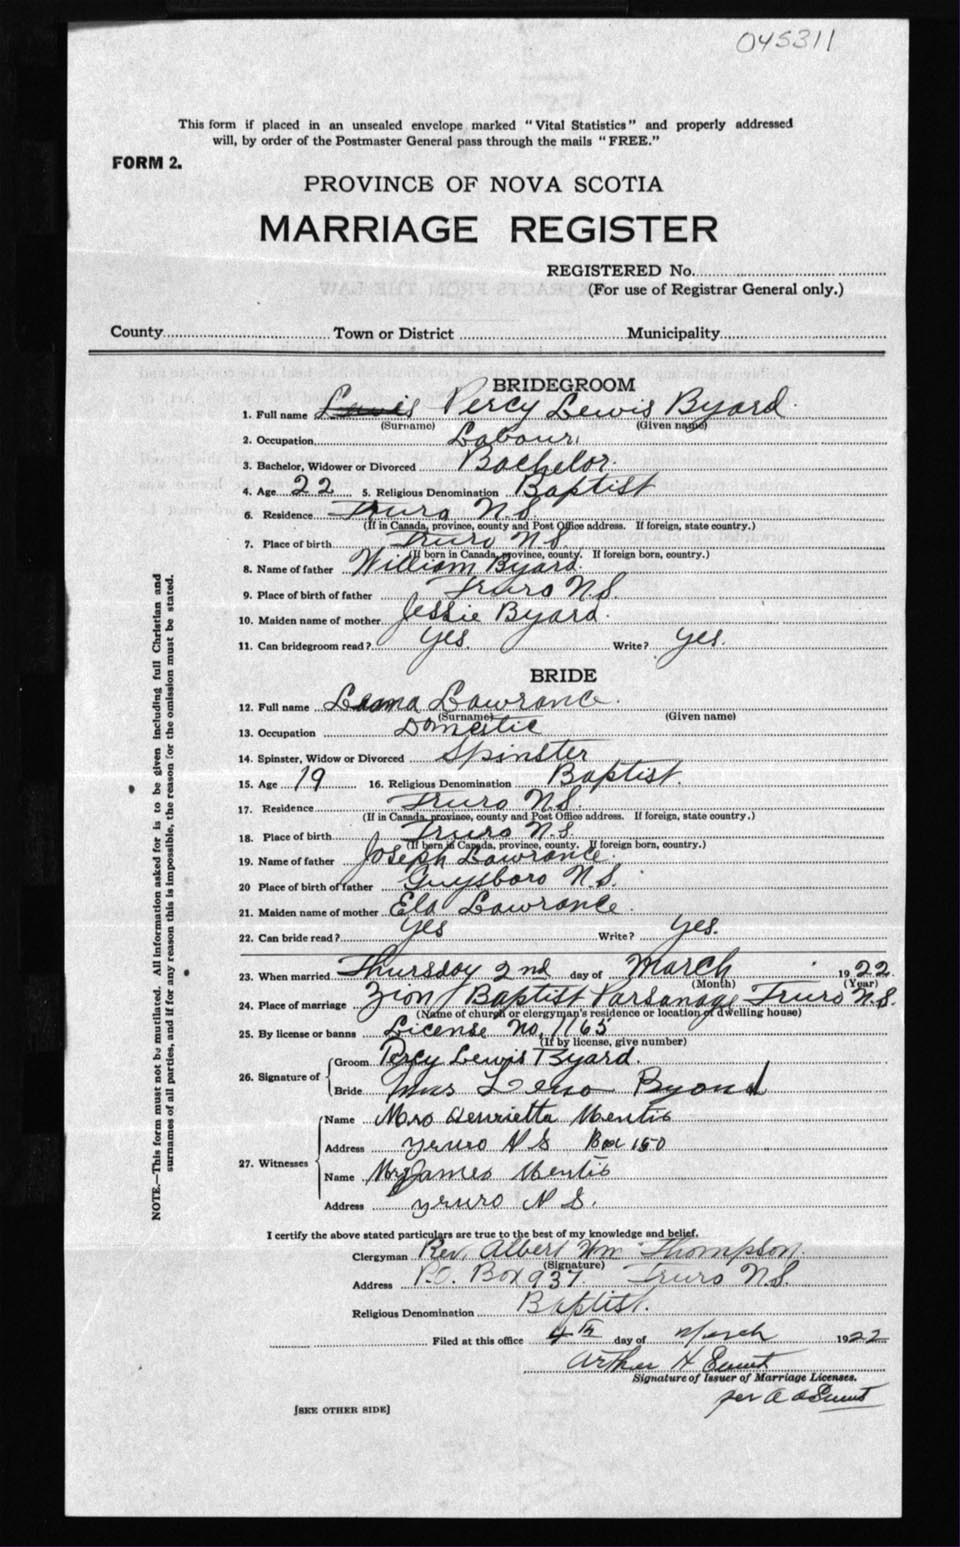 045311
This form if placed in an unsealed envelope marked "Vital Statistics" and properly addressed
will, by order of the Postmaster General pass through the mails "FREE."
FORM 2.
PROVINCE OF NOVA SCOTIA
MARRIAGE REGISTER
REGISTERED No.
(For use of Registrar General only.)
County Town or District Municipality
BRIDEGROOM
1. Full name Lewis Percy Lewis Byard
(Surname) (Given name)
2. Occupation Labour
3. Bachelor, Widower or Divorced Bachelor.
4. Age 22 5. Religious Denomination Baptist
6. Residence Truro N.S.
(If in Canada, province, county and Post Office address. If foreign, state country.)
7. Place of birth Truro N.S.
(If born in Canada, province, county. If foreign born, country.)
8. Name of father William Byard.
9. Place of birth of father Truro N.S.
10. Maiden name of mother Jessie Byard.
11. Can bridegroom read? Yes. Write? Yes.
BRIDE
12. Full name Lawrance.
(Surname) (Given name)
13. Occupation Domestic
14. Spinster, Widow or Divorced Spinster
15. Age 19 16. Religious Denomination Baptist.
17. Residence Truro N.S.
(If in Canada, province, county and Post Office address. If foreign, state country.)
18. Place of birth Truro N.S.
(If born in Canada, province, county. If foreign born, country.)
19. Name of father Joseph Lawrance.
20 Place of birth of father Guysboro N.S.
21. Maiden name of mother Ela Lawrance.
22. Can bride read? Yes Write? Yes.
23. When married Thursday 2nd day of March 1922.
(Month) (Year)
24. Place of marriage Zion Baptist Parsanage Truro N.S.
(Name of church or clergyman's residence or location of dwelling house)
25. By license or banns License No. 1165
(If by license, give number)
26. Signature of Groom Percy Lewis Byard.
Bride Miss Byard
27. Witnesses Name Mrs Henrietta Mentis
Address Truro N S Box 150
Name Mr James Mentis
Address Truro N S.
I certify the above stated particulars are true to the best of my knowledge and belief.
Clergyman Rev. Albert Wm Thompson.
(Signature)
Address P.O. Box 937. Truro N.S.
Religious Denomination Baptist.
Filed at this office 4th day of March 1922
Arthur H
Signature of Issuer of Marriage Licenses.
per A
[SEE OTHER SIDE]
NOTE.—This form must not be mutilated. All information asked for is to be given including full Christian and
surnames of all parties, and if for any reason this is impossible, the reason for the omission must be stated.